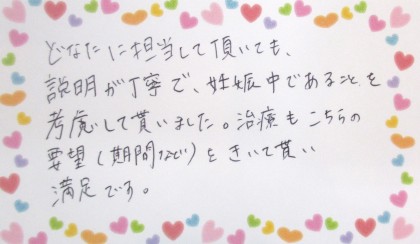 どなたに担当して頂いても、
説明が丁寧で、妊娠中であることを
考慮して貰いました。治療もこちらの
要望(期間など)をきいて貰い
満足です。